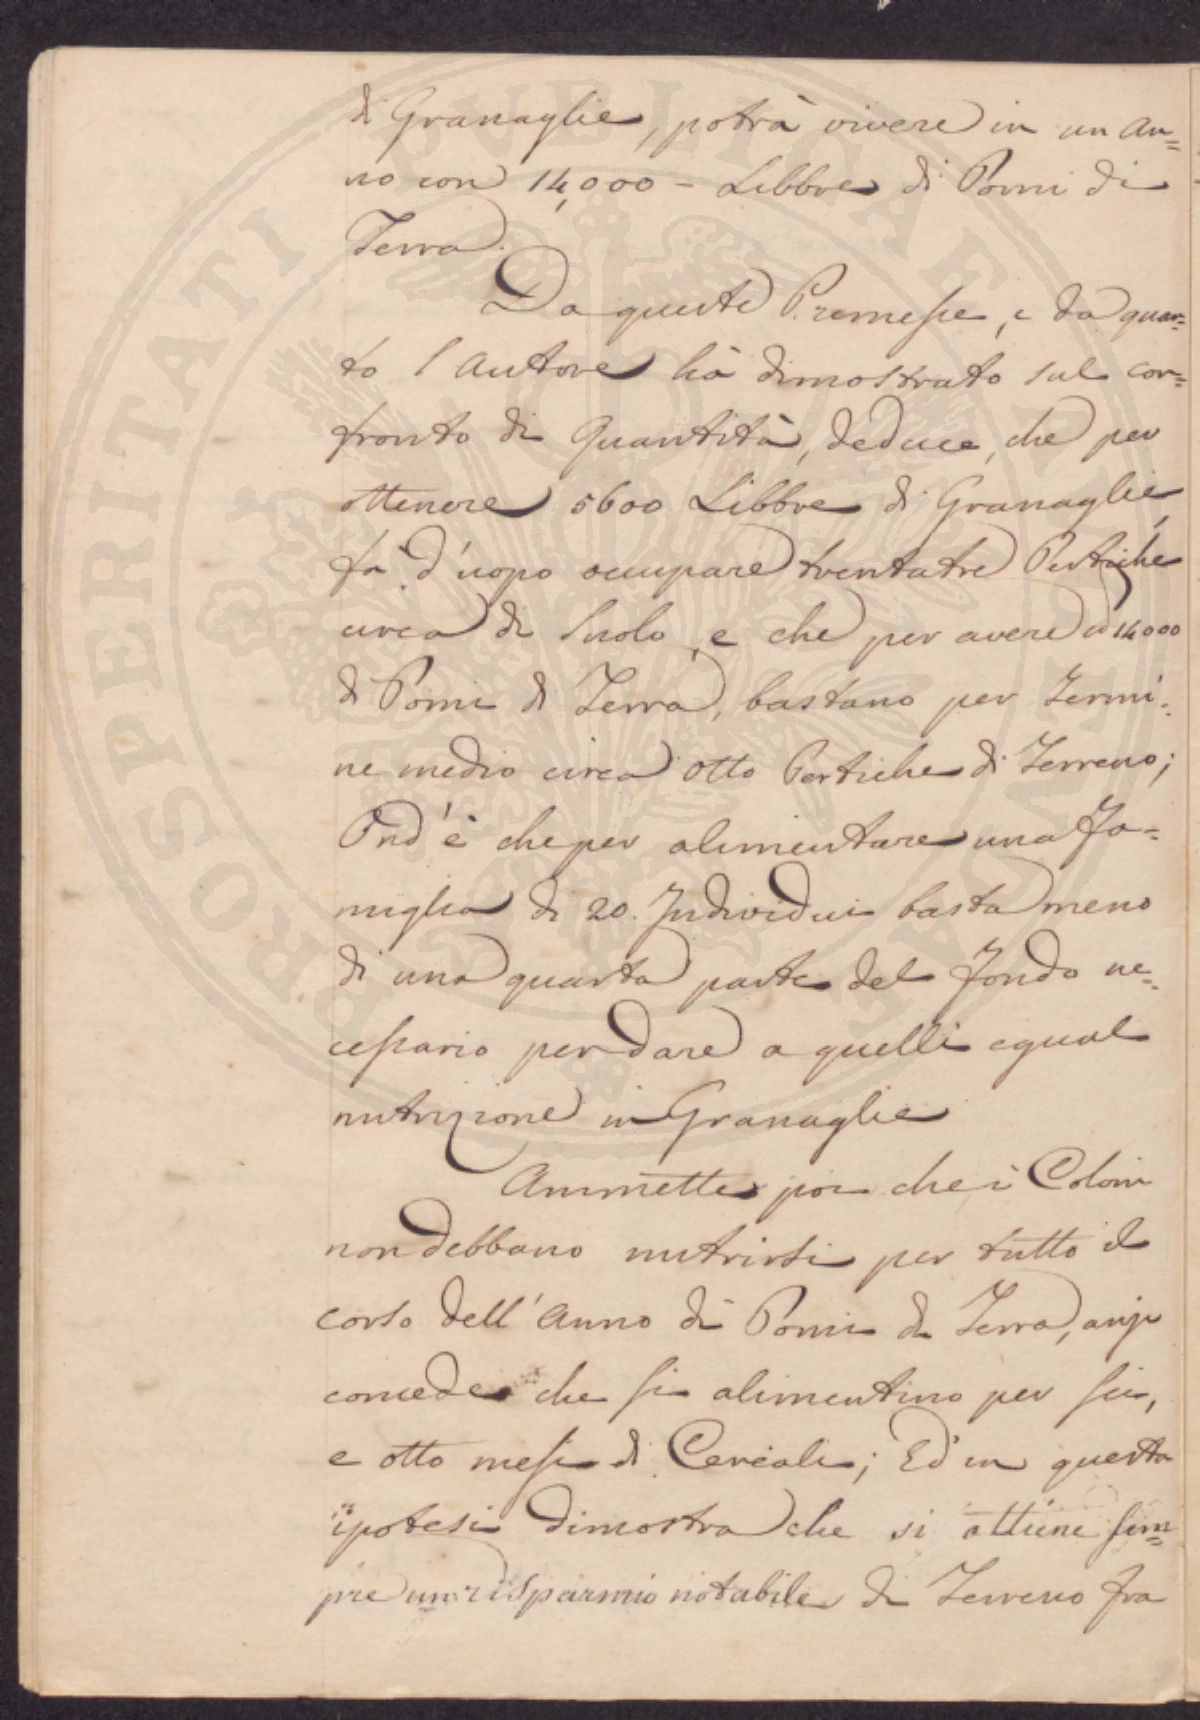 di Granaglie, potrà vivere in un An=
no con 14,000 - Libbre di Pomi di
Terra.
Da queste Premesse, e da quan=
to l'Autore hà dimostrato sul con=
fronto di Quantità, deduce, che per
ottenere 5600 Libbre di Granaglie,
fà d'uopo occupare trentatre Pertiche
circa di Suolo, e che per avere 14000
di Pomi di Terra, bastano per Termi=
ne medio circa otto Pertiche di Terreno;
Ond'è che per alimentare una Fa=
miglia di 20. Individui basta meno
di una quarta parte del Fondo ne=
cessario per dare a quelli egual
nutrizione in Granaglie
Ammette poi che i Coloni
non debbano nutrirsi per tutto il
corso dell'Anno di Pomi di Terra, anzi
concede che si alimentino per sei,
e otto mesi di Cereali; Ed in questa
ipotesi dimostra che si ottiene sem=
pre un risparmio notabile di Terreno fra
PROSPERITATI PVBLICAE AVGENDAE